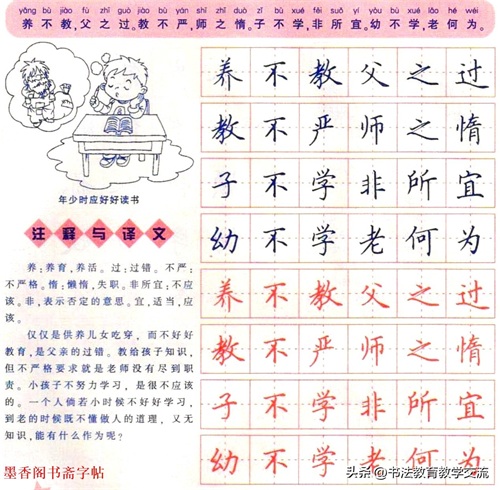 yǎng bú jiào fù zhī guò jiào bù yán shī zhī duò zǐ bù xué fēi suǒ yí yòu bù xué lǎo hé wéi
养不教,父之过。教不严,师之惰。子不学,非所宜。幼不学,老何为。
年少时应好好读书
注释与译文
养:养育,养活。过:过错。不严:
不严格。惰:懒惰,失职。非所宜:不应
该。非:表示否定的意思。宜,适当,应
该。
仅仅是供养儿女吃穿,而不好好
教育,是父亲的过错。教给孩子知识,
但不严格要求就是老师没有尽到职
责。小孩子不努力学习,是很不应该
的。一个人倘若小时候不好好学习,
到老的时候既不懂做人的道理,又无
知识,能有什么作为呢?
养不教父之过
教不严师之惰
子不学非所宜
幼不学老何为
养不教父之过
教不严师之惰
子不学非所宜
幼不学老何为
墨香阁书斋字帖
头条@书法教育教学交流